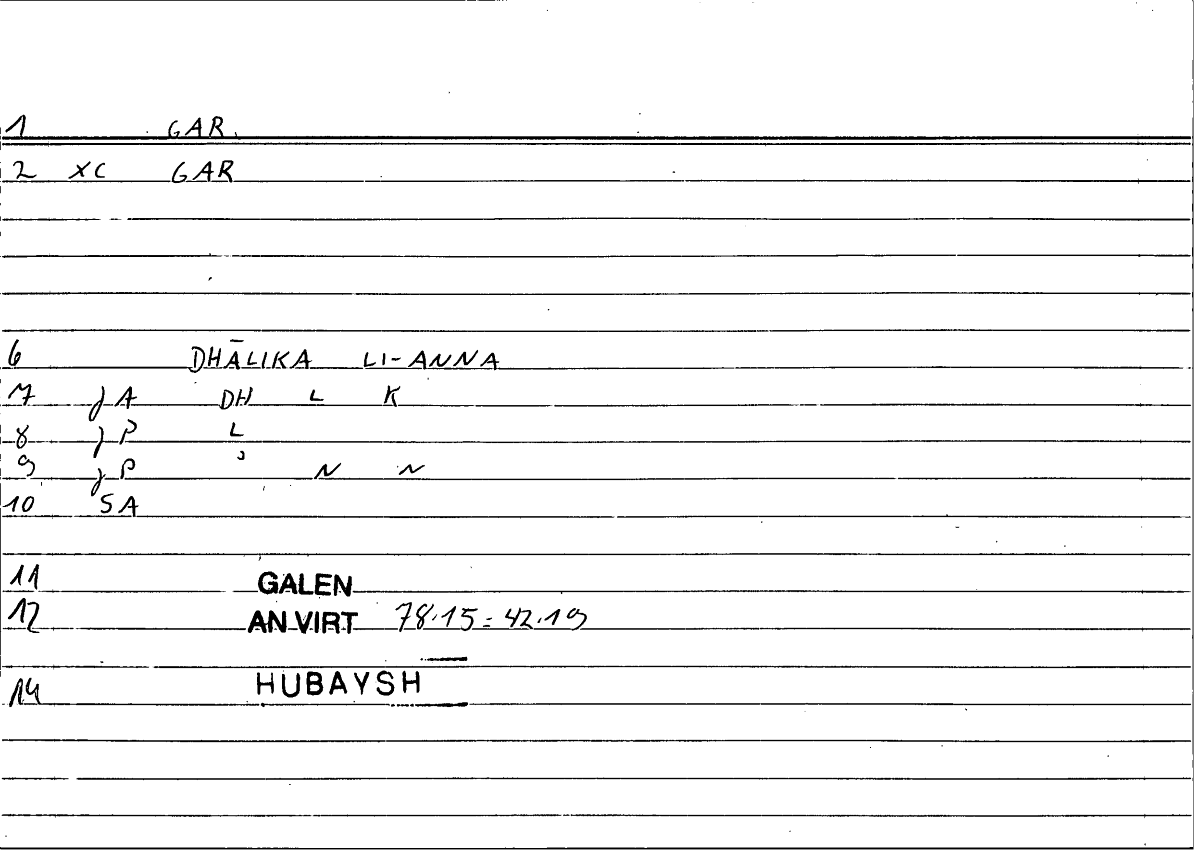 1 GAR
2 XC GAR
6 DHĀLIKA LI-ANNA
7 JA DH L K
8 JP L
9 JP ʾ N N
10 SA
11 GALEN
12 AN VIRT 78.15 = 42.19
14 HUBAYSH